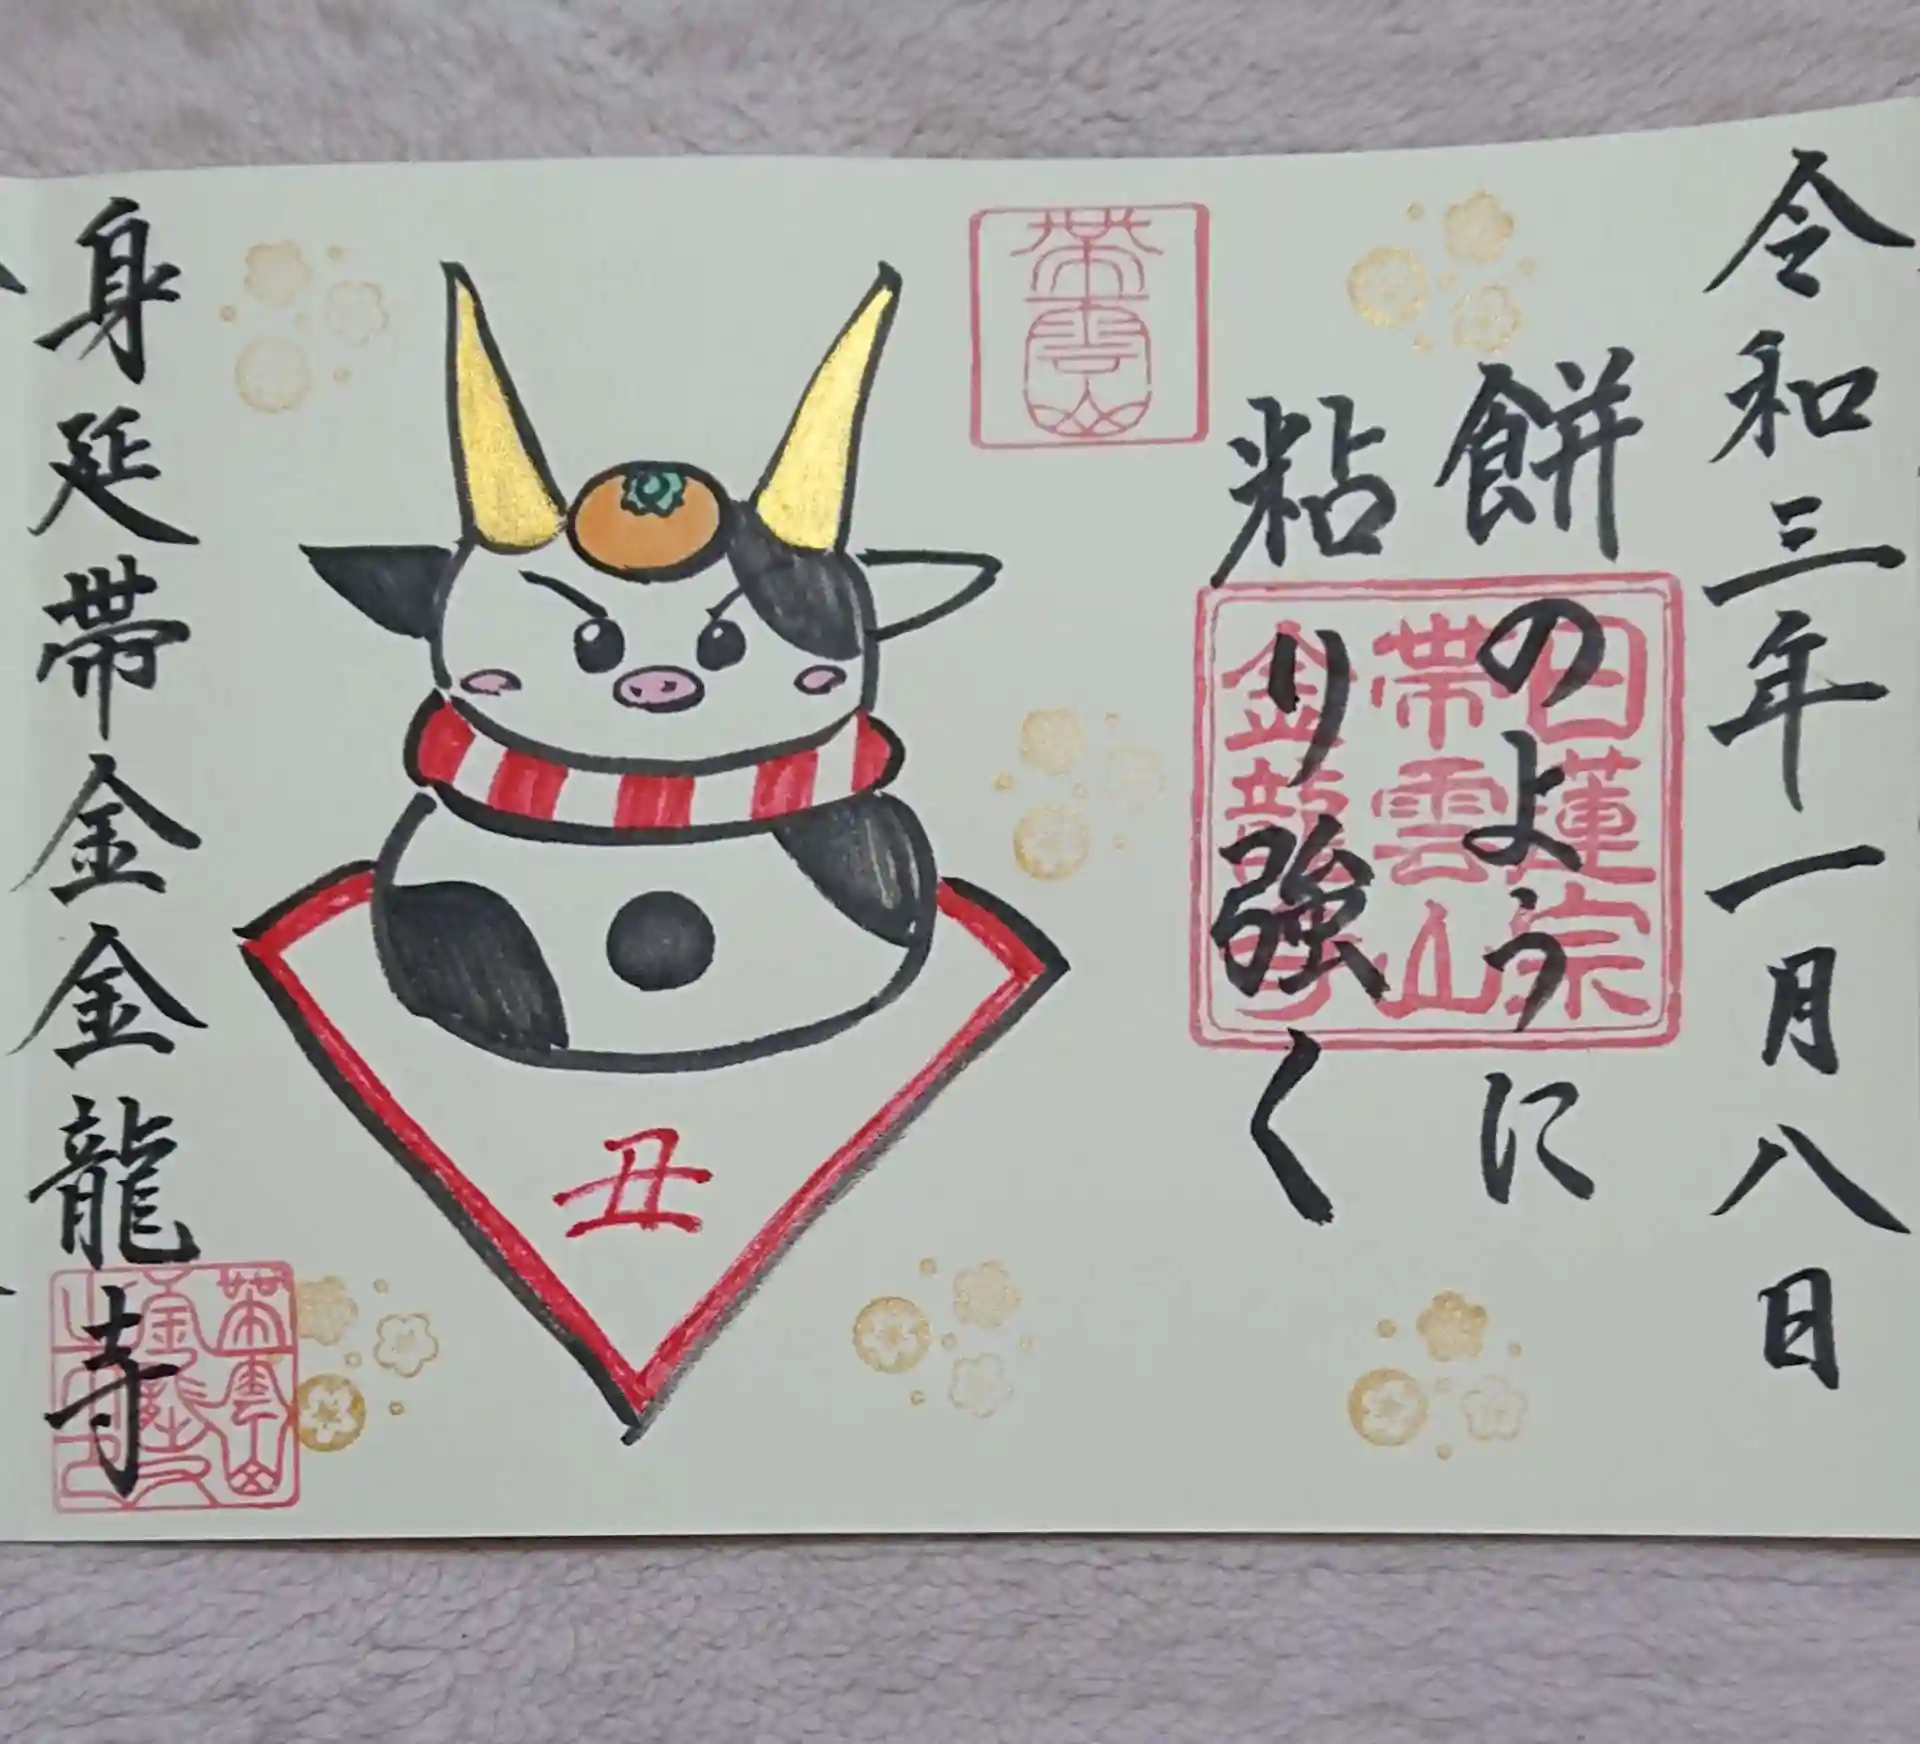 令和三年一月八日
餅のように
粘り強く
帯雲山
日蓮宗
帯雲山
金龍寺
丑
身延帯金金龍寺